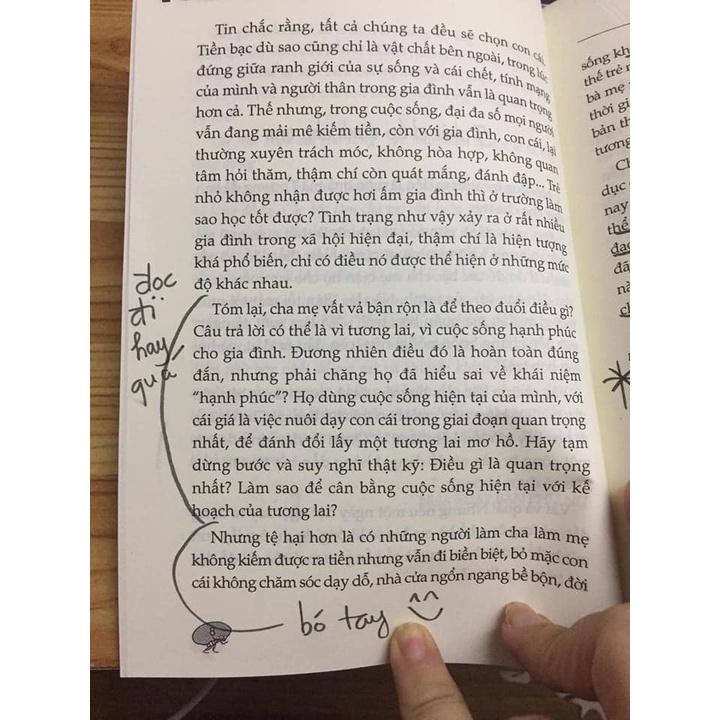 Tin chắc rằng, tất cả chúng ta đều sẽ chọn con cái.
Tiền bạc dù sao cũng chỉ là vật chất bên ngoài, trong lúc
đứng giữa ranh giới của sự sống và cái chết, tính mạng
của mình và người thân trong gia đình vẫn là quan trọng
hơn cả. Thế nhưng, trong cuộc sống, đại đa số mọi người
vẫn đang mải mê kiếm tiền, còn với gia đình, con cái, lại
thường xuyên trách móc, không hòa hợp, không quan
tâm hỏi thăm, thậm chí còn quát mắng, đánh đập... Trẻ
nhỏ không nhận được hơi ấm gia đình thì ở trường làm
sao học tốt được? Tình trạng như vậy xảy ra ở rất nhiều
gia đình trong xã hội hiện đại, thậm chí là hiện tượng
khá phổ biến, chỉ có điều nó được thể hiện ở những mức
độ khác nhau.
đọc
đi
hay
quá
Tóm lại, cha mẹ vất vả bận rộn là để theo đuổi điều gì?
Câu trả lời có thể là vì tương lai, vì cuộc sống hạnh phúc
cho gia đình. Đương nhiên điều đó là hoàn toàn đúng
đắn, nhưng phải chăng họ đã hiểu sai về khái niệm
“hạnh phúc”? Họ dùng cuộc sống hiện tại của mình, với
cái giá là việc nuôi dạy con cái trong giai đoạn quan trọng
nhất, để đánh đổi lấy một tương lai mơ hồ. Hãy tạm
dừng bước và suy nghĩ thật kỹ: Điều gì là quan trọng
nhất? Làm sao để cân bằng cuộc sống hiện tại với kế
hoạch của tương lai?
Nhưng tệ hại hơn là có những người làm cha làm mẹ
không kiếm được ra tiền nhưng vẫn đi biền biệt, bỏ mặc con
cái không chăm sóc dạy dỗ, nhà cửa ngổn ngang bề bộn, đời
8
bó tay
sống
thế trẻ
bà mẹ
thời
bản
tương
dục
nay
thể
đã